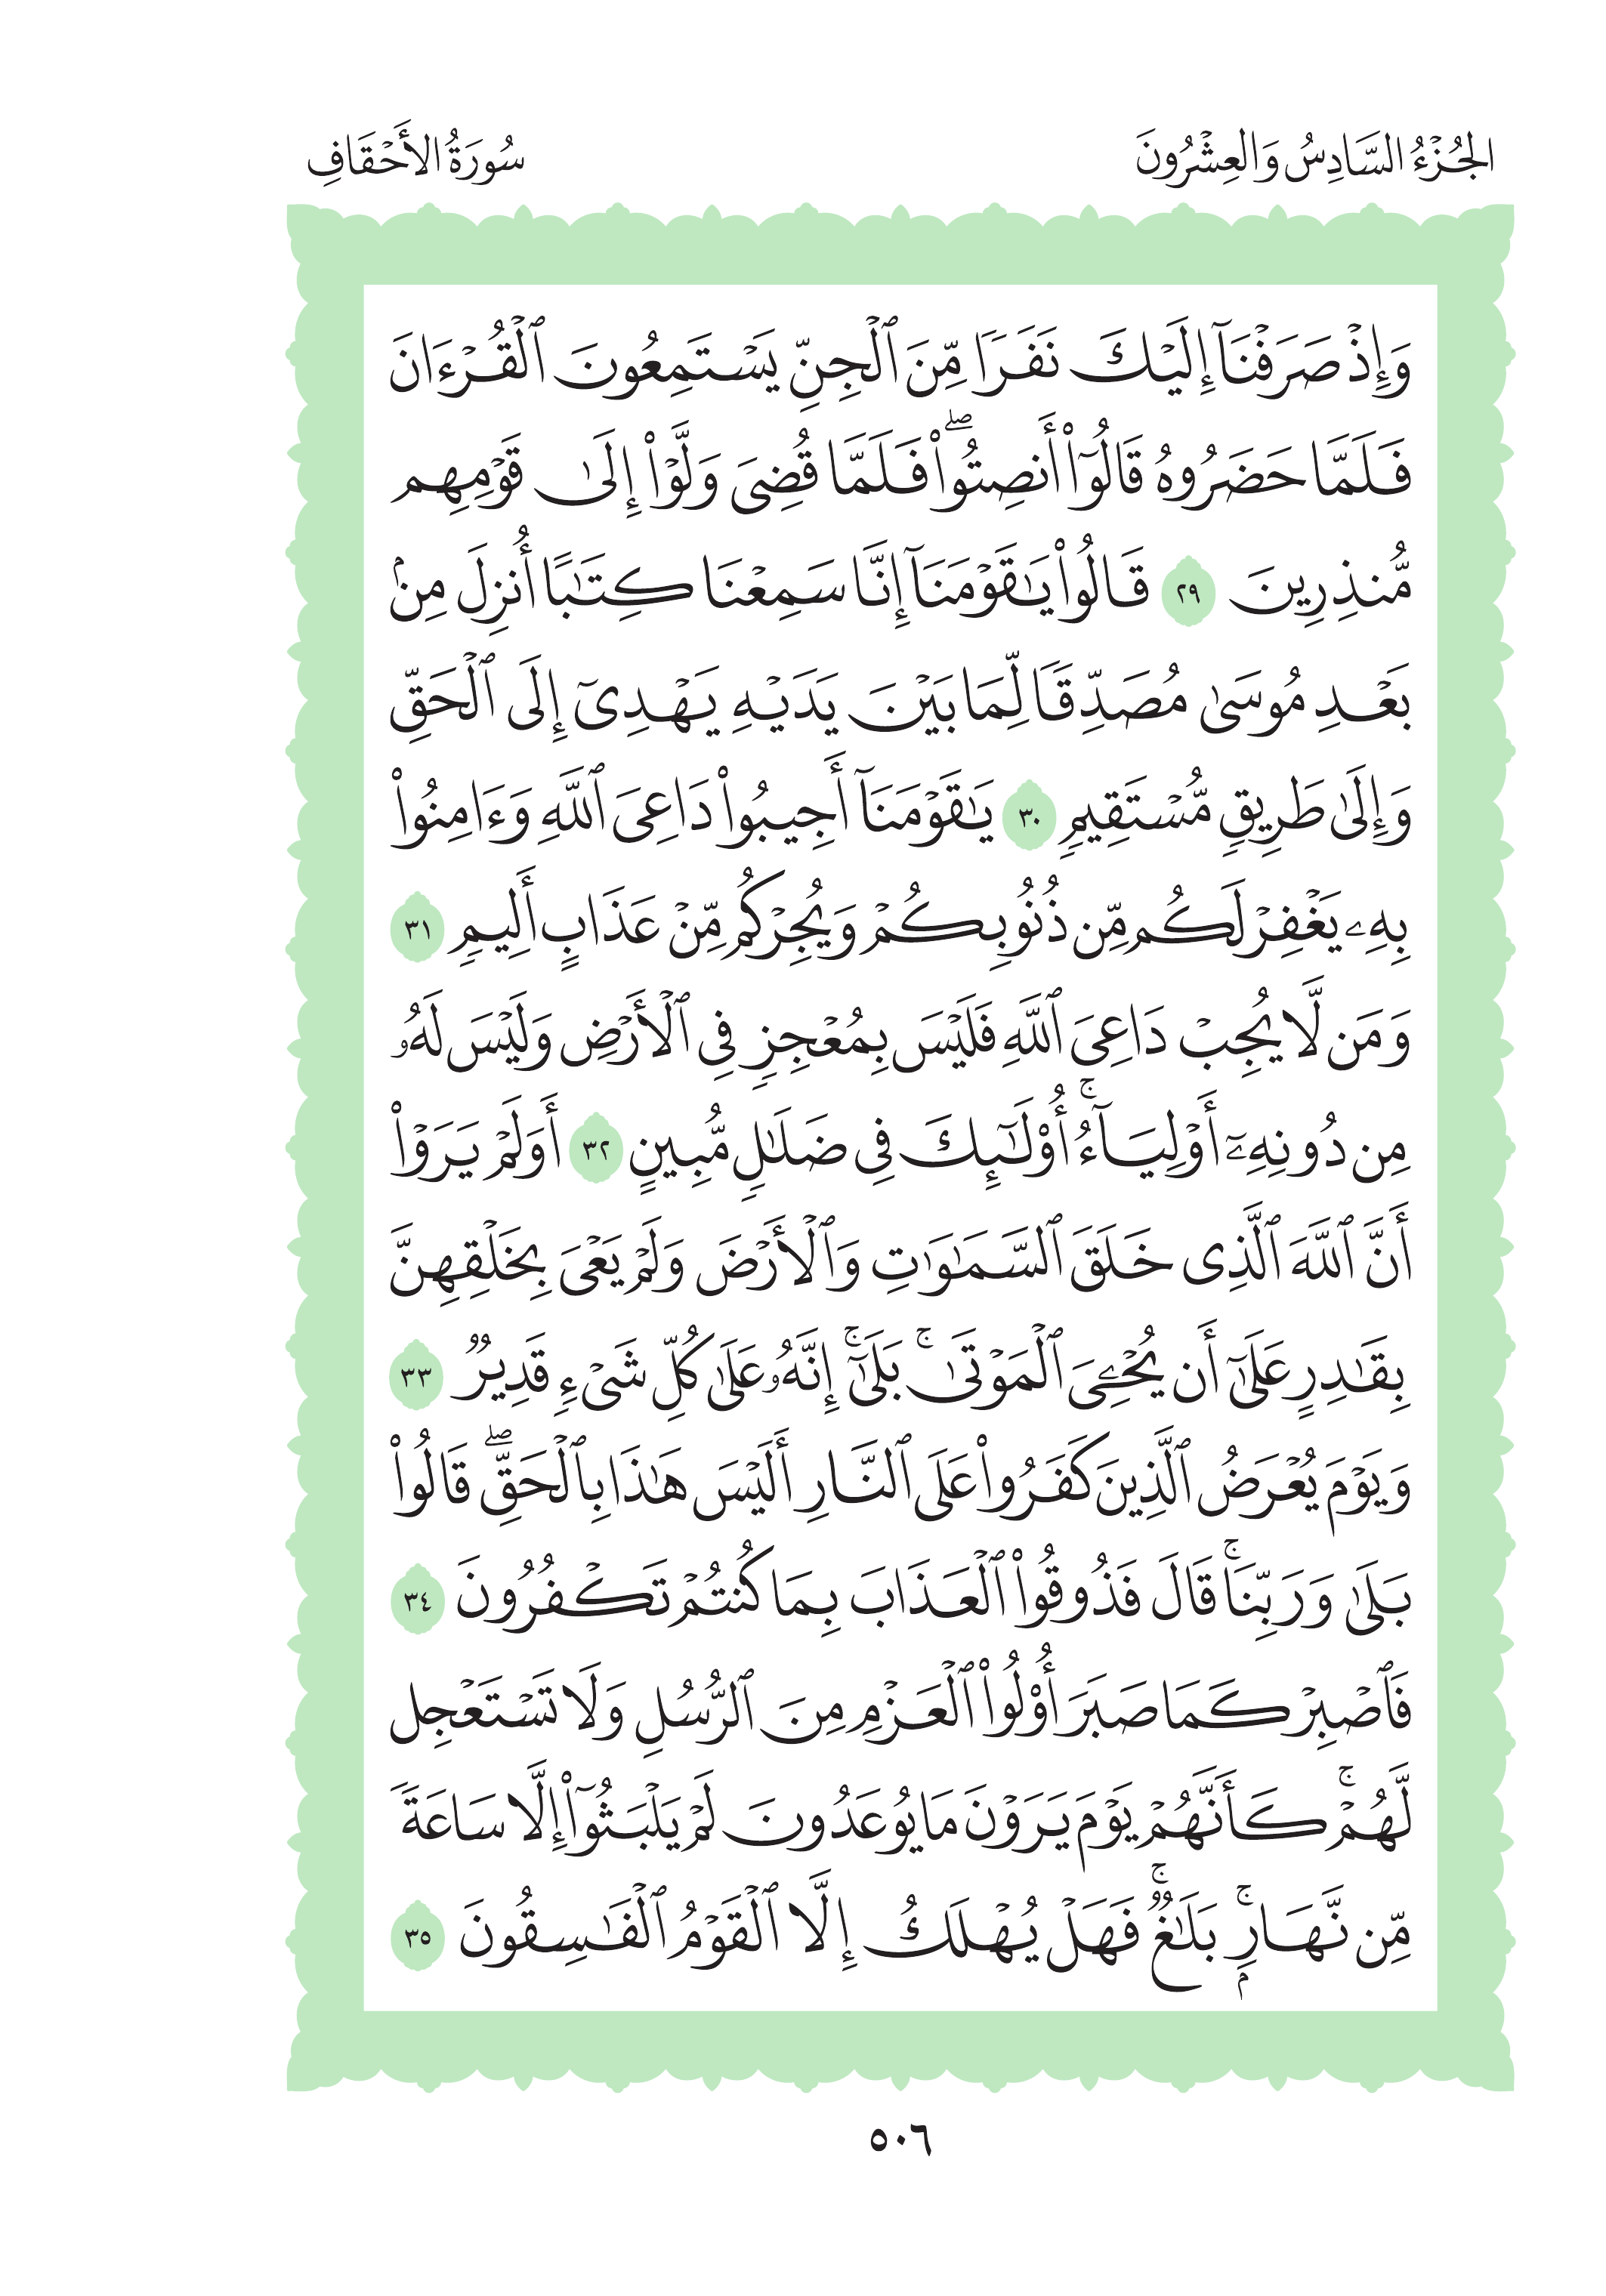 الجُزْءُ السَّادِسُ وَالعِشْرُونَ
سُورَةُ الأَحْقَافِ
وَإِذْ صَرَفْنَآ إِلَيْكَ نَفَرًا مِّنَ ٱلْجِنِّ يَسْتَمِعُونَ ٱلْقُرْءَانَ
فَلَمَّا حَضَرُوهُ قَالُوٓا۟ أَنصِتُوا۟ۖ فَلَمَّا قُضِىَ وَلَّوْا۟ إِلَىٰ قَوْمِهِم
مُّنذِرِينَ ٢٩ قَالُوا۟ يَٰقَوْمَنَآ إِنَّا سَمِعْنَا كِتَٰبًا أُنزِلَ مِنۢ
بَعْدِ مُوسَىٰ مُصَدِّقًا لِّمَا بَيْنَ يَدَيْهِ يَهْدِىٓ إِلَى ٱلْحَقِّ
وَإِلَىٰ طَرِيقٍ مُّسْتَقِيمٍ ٣٠ يَٰقَوْمَنَآ أَجِيبُوا۟ دَاعِىَ ٱللَّهِ وَءَامِنُوا۟
بِهِۦ يَغْفِرْ لَكُم مِّن ذُنُوبِكُمْ وَيُجِرْكُم مِّنْ عَذَابٍ أَلِيمٍ ٣١
وَمَن لَّا يُجِبْ دَاعِىَ ٱللَّهِ فَلَيْسَ بِمُعْجِزٍ فِى ٱلْأَرْضِ وَلَيْسَ لَهُۥ
مِن دُونِهِۦٓ أَوْلِيَآءُۚ أُو۟لَٰٓئِكَ فِى ضَلَٰلٍ مُّبِينٍ ٣٢ أَوَلَمْ يَرَوْا۟
أَنَّ ٱللَّهَ ٱلَّذِى خَلَقَ ٱلسَّمَٰوَٰتِ وَٱلْأَرْضَ وَلَمْ يَعْىَ بِخَلْقِهِنَّ
بِقَٰدِرٍ عَلَىٰٓ أَن يُحْـِۧىَ ٱلْمَوْتَىٰۚ بَلَىٰٓۚ إِنَّهُۥ عَلَىٰ كُلِّ شَىْءٍ قَدِيرٌ ٣٣
وَيَوْمَ يُعْرَضُ ٱلَّذِينَ كَفَرُوا۟ عَلَى ٱلنَّارِ أَلَيْسَ هَٰذَا بِٱلْحَقِّۖ قَالُوا۟
بَلَىٰ وَرَبِّنَاۚ قَالَ فَذُوقُوا۟ ٱلْعَذَابَ بِمَا كُنتُمْ تَكْفُرُونَ ٣٤
فَٱصْبِرْ كَمَا صَبَرَ أُو۟لُوا۟ ٱلْعَزْمِ مِنَ ٱلرُّسُلِ وَلَا تَسْتَعْجِل
لَّهُمْۚ كَأَنَّهُمْ يَوْمَ يَرَوْنَ مَا يُوعَدُونَ لَمْ يَلْبَثُوٓا۟ إِلَّا سَاعَةً
مِّن نَّهَارٍۭۚ بَلَٰغٌۚ فَهَلْ يُهْلَكُ إِلَّا ٱلْقَوْمُ ٱلْفَٰسِقُونَ ٣٥
٥٠٦